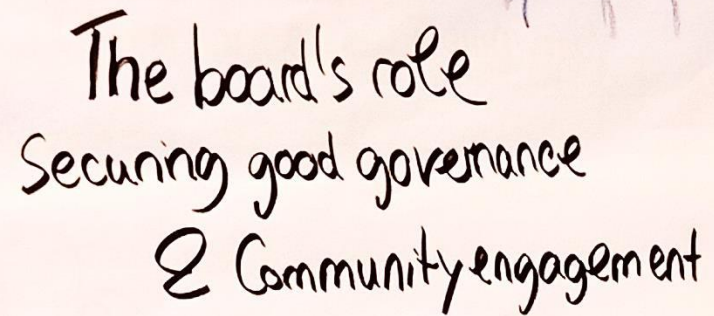 The board's role
Securing good governance
& Community engagement